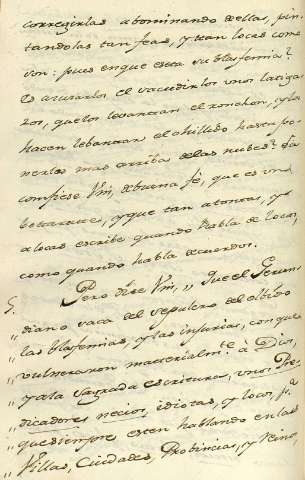 corregirlas abominando de ellas, pin-
tandolas tan feas, y tan locas como
son: pues en que esta su blasfemia?
Es acusarlos el sacudirlos unos latiga
zos, que los levantan el ronchon, y los
hacen lebantar el ahullido hasta po-
nerlos mas arriba de las nubes? Ea
confiese Vm, de buena fe, que es un
betarave, y que tan atontas, y
a locas escribe quando habla de locos,
como quando habla de cuerdos.
5. Pero dize Vm, "que el Gerun
"diano saca del sepulcro del olbido
"las blasfemias, y las injurias, con que
"vulneraron materialmte. à Dios,
"y a la sagrada escritura, unos Pre
"dicadores necios, idiotas, y locos, pa.
"que siempre esten hablando en las
"Villas, Ciudades, Probincias, y Reino,